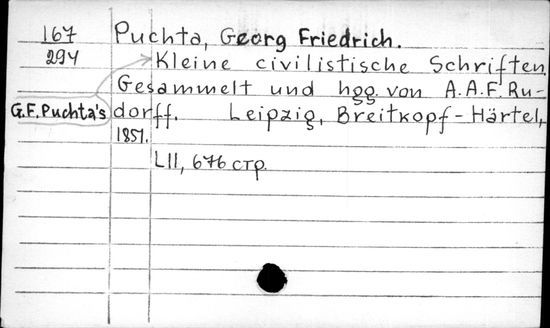 167 Puchta, Georg Friedrich.
294 Kleine civilistische Schriften.
Gesammelt und hgg. von A.A.F. Ru-
G.F. Puchta's dorff. Leipzig, Breitkopf-Härtel,
1851.
LII, 676 стр.